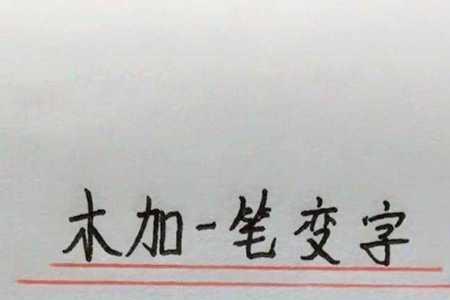 木加一笔变字